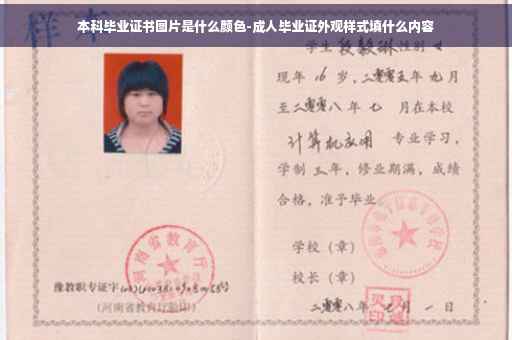 本科毕业证书图片是什么颜色-成人毕业证外观样式填什么内容
样本
学生段毅琳性别女
现年16岁，二零零五年九月
至二零零八年七月在本校
计算机应用 专业学习，
学制三年，修业期满，成绩
合格，准予毕业
学校（章）
河南省教育厅
校长（章）
豫教职专证字
（河南省教育厅验印）
二零零八年七月一日